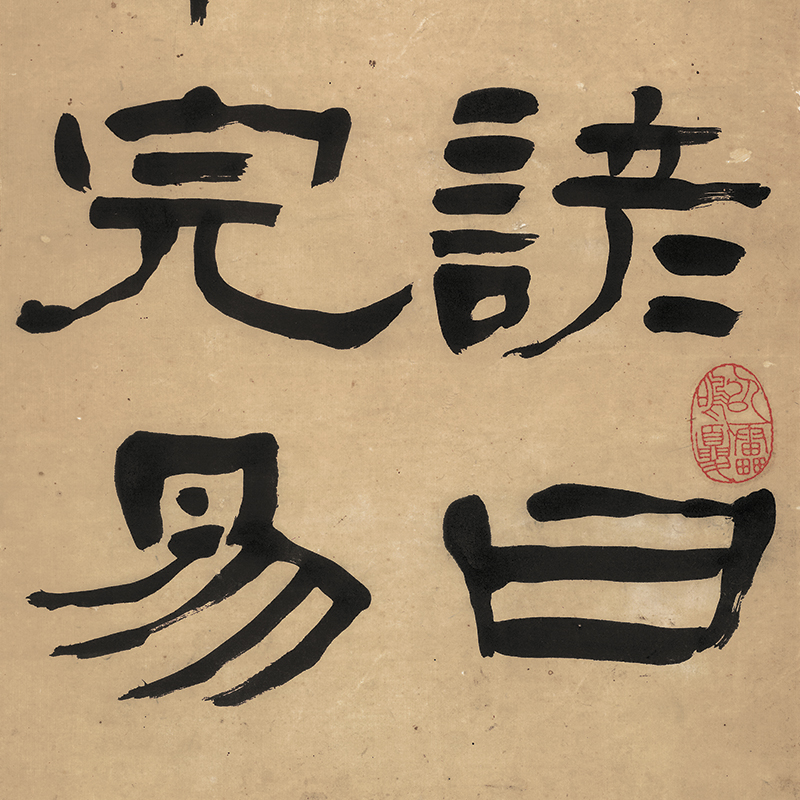 諺曰
完易